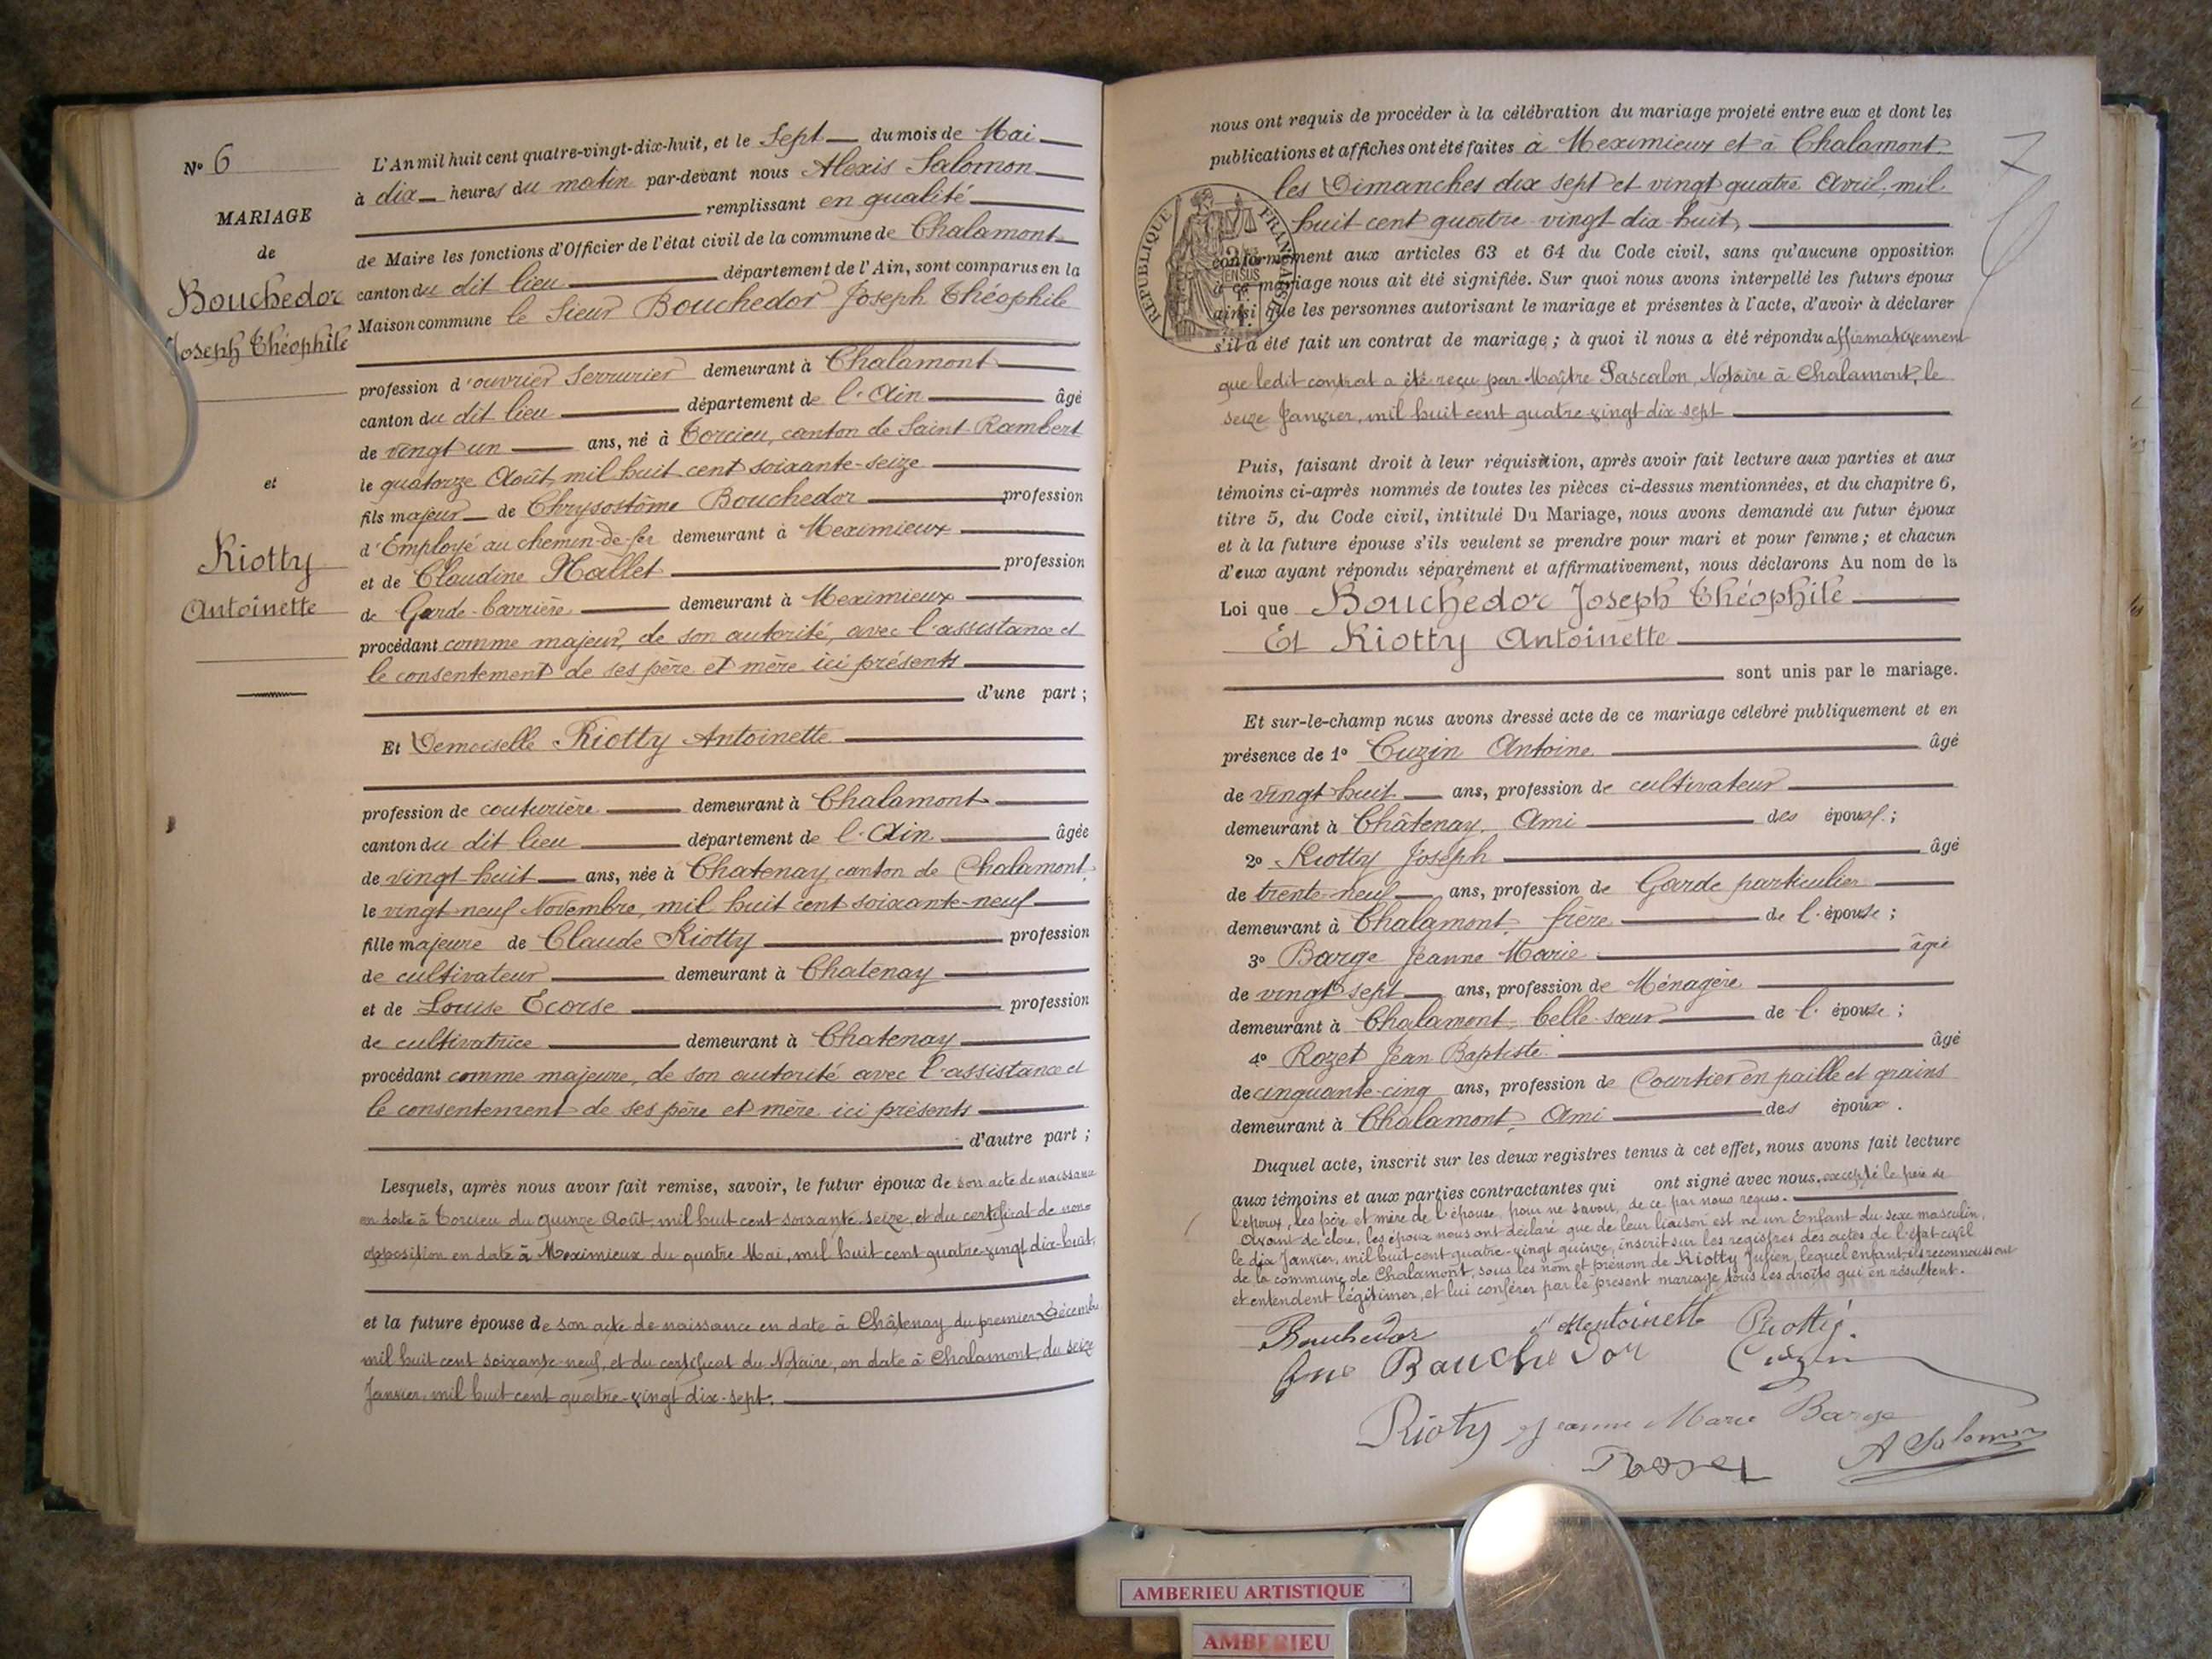 N° 6
MARIAGE
de
Bouchedor
Joseph Théophile
et
Riotty
Antoinette
L'An mil huit cent quatre-vingt-dix-huit, et le Sept du mois de Mai
à dix heures du matin par-devant nous Alexis Salomon
remplissant en qualité
de Maire les fonctions d'Officier de l'état civil de la commune de Chalamont
canton du dit lieu département de l'Ain, sont comparus en la
Maison commune le Sieur Bouchedor Joseph Théophile
profession d'ouvrier Serrurier demeurant à Chalamont
canton du dit lieu département de l'Ain âgé
de vingt un ans, né à Torcieu, canton de Saint-Rambert
le quatorze Août, mil huit cent soixante-seize
fils majeur de Chrysostôme Bouchedor profession
d'Employé au chemin-de-fer demeurant à Meximieux
et de Claudine Mallet profession
de Garde-barrière demeurant à Meximieux
procédant comme majeur, de son autorité, avec l'assistance et
le consentement de ses père et mère ici présents
d'une part ;
Et Demoiselle Riotty Antoinette
profession de couturière demeurant à Chalamont
canton du dit lieu département de l'Ain âgée
de vingt huit ans, née à Chatenay, canton de Chalamont
le vingt neuf Novembre, mil huit cent soixante-neuf
fille majeure de Claude Riotty profession
de cultivateur demeurant à Chatenay
et de Louise Ecorse profession
de cultivatrice demeurant à Chatenay
procédant comme majeure, de son autorité avec l'assistance et
le consentement de ses père et mère ici présents
d'autre part ;
Lesquels, après nous avoir fait remise, savoir, le futur époux de son acte de naissance
en date à Torcieu du quinze Août, mil huit cent soixante-seize, et du certificat de non-
opposition en date à Meximieux du quatre Mai, mil huit cent quatre-vingt dix-huit,
et la future épouse de son acte de naissance en date à Châtenay du premier Décembre
mil huit cent soixante-neuf, et du certificat du Notaire, en date à Chalamont, du seize
Janvier, mil huit cent quatre-vingt dix-sept.
nous ont requis de procéder à la célébration du mariage projeté entre eux et dont les
publications et affiches ont été faites à Meximieux et à Chalamont
les Dimanches dix sept et vingt quatre Avril, mil
huit cent quatre vingt dix huit,
REPUBLIQUE FRANÇAISE
conformément aux articles 63 et 64 du Code civil, sans qu'aucune opposition
à ce mariage nous ait été signifiée. Sur quoi nous avons interpellé les futurs époux
ainsi que les personnes autorisant le mariage et présentes à l'acte, d'avoir à déclarer
s'il a été fait un contrat de mariage ; à quoi il nous a été répondu affirmativement
que ledit contrat a été reçu par Maître Pascalon, Notaire à Chalamont, le
seize Janvier, mil huit cent quatre-vingt dix-sept
Puis, faisant droit à leur réquisition, après avoir fait lecture aux parties et aux
témoins ci-après nommés de toutes les pièces ci-dessus mentionnées, et du chapitre 6,
titre 5, du Code civil, intitulé Du Mariage, nous avons demandé au futur époux
et à la future épouse s'ils veulent se prendre pour mari et pour femme ; et chacun
d'eux ayant répondu séparément et affirmativement, nous déclarons Au nom de la
Loi que Bouchedor Joseph Théophile
Et Riotty Antoinette
sont unis par le mariage.
Et sur-le-champ nous avons dressé acte de ce mariage célébré publiquement et en
présence de 1° Cuzin Antoine âgé
de vingt huit ans, profession de cultivateur
demeurant à Châtenay, Ami des époux ;
2° Riotty Joseph âgé
de trente-neuf ans, profession de Garde particulier
demeurant à Chalamont, frère de l'épouse ;
3° Barge Jeanne Marie âgé
de vingt sept ans, profession de Ménagère
demeurant à Chalamont, belle-sœur de l'épouse ;
4° Rozet Jean Baptiste âgé
de cinquante-cinq ans, profession de Courtier en paille et grains
demeurant à Chalamont, Ami des époux.
Duquel acte, inscrit sur les deux registres tenus à cet effet, nous avons fait lecture
aux témoins et aux parties contractantes qui ont signé avec nous, excepté le père de
l'époux, les père et mère de l'épouse, pour ne savoir, de ce par nous requis.
Avant de clore, les époux nous ont déclaré que de leur liaison est né un Enfant du sexe masculin,
le dix Janvier, mil huit cent quatre-vingt quinze, inscrit sur les registres des actes de l'état-civil
de la commune de Chalamont, sous les nom et prénom de Riotty Julien, lequel enfant ils reconnaissent
et entendent légitimer, et lui conférer par le présent mariage tous les droits qui en résultent.
Bouchedor Antoinette Riotty
Bouchedor Cuzin
Rioty Jeanne Marie Barge
Rozet A Salomon
AMBERIEU ARTISTIQUE
AMBERIEU